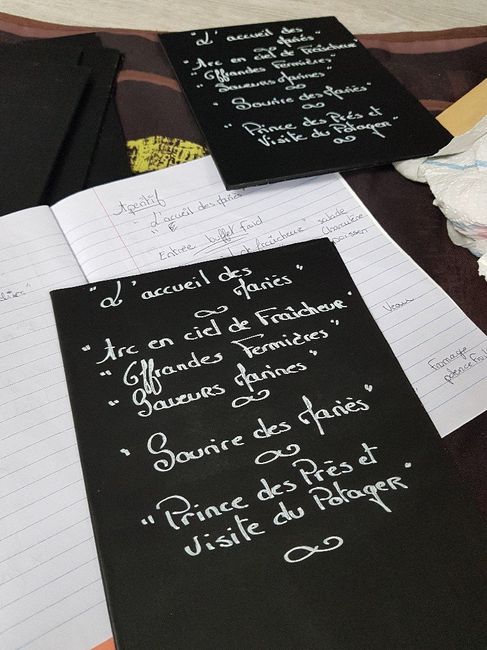 "L'accueil des
Mariés"
"Arc en ciel de Fraîcheur"
"Offrandes Fermières"
"Saveurs Marines"
"Sourire des Mariés"
"Prince des Prés et
Visite du Potager"
Apéritif
"L'accueil des Mariés"
Entrée buffet froid
de fraîcheur" salade
Charcutière
poisson
Veau
fromage
"L'accueil des
Mariés"
"Arc en ciel de Fraîcheur"
"Offrandes Fermières"
"Saveurs Marines"
"Sourire des Mariés"
"Prince des Prés et
Visite du Potager"